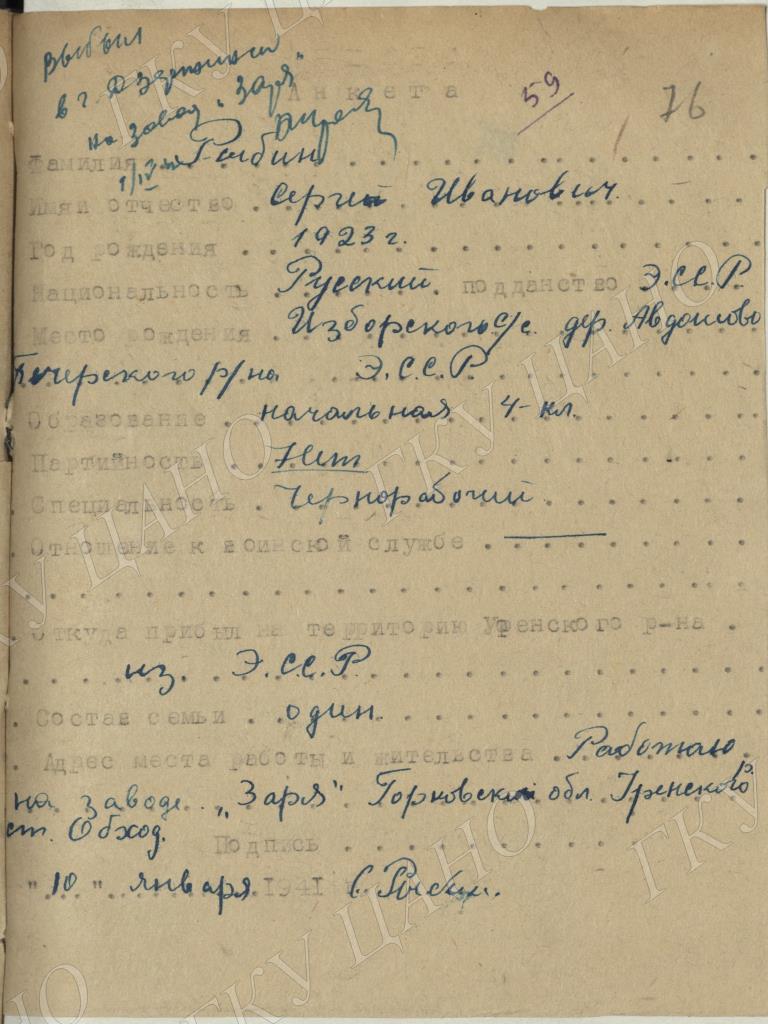 выбыл
в г. Дзержинск
на завод "Заря"
1/IV
Анкета
59
76
Фамилия Рыбин
Имя и отчество Сергей Иванович
Год рождения 1923 г.
Национальность Русский. подданство Э.С.С.Р.
Место рождения Изборского с/с. дер. Авдошово
Печерского р/на Э.С.С.Р.
Образование начальная 4-кл.
Партийность Нет
Специальность Чернорабочий
Отношение к воинской службе ———
Откуда прибыл на территорию Уренского р-на
из Э.С.С.Р.
Состав семьи один.
Адрес места работы и жительства Работаю
на заводе "Заря" Горковской обл. Уренского р.
ст. Обход.
Подпись
"10" января 1941 С. Рыбин.
ГКУ ЦАНО